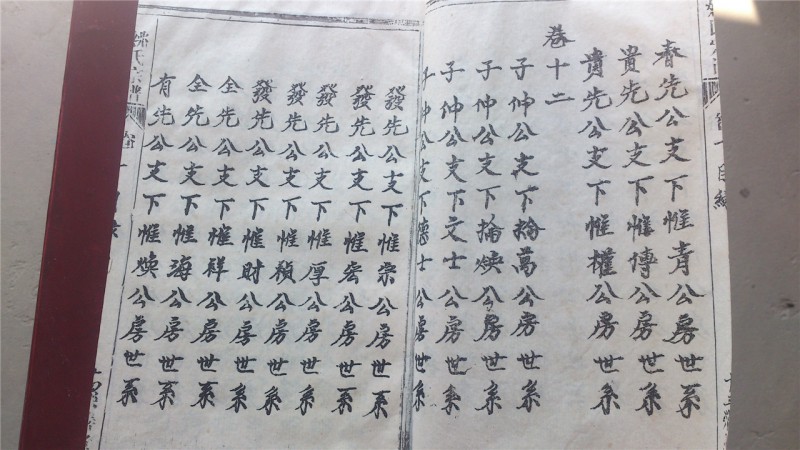 春先公支下惟青公房世系
貴先公支下惟傳公房世系
貴先公支下惟權公房世系
卷十二
子仲公支下掄萬公房世系
子仲公支下掄煥公房世系
子仲公支下文士公房世系
子仲公支下德士公房世系
發先公支下惟宗公房世系
發先公支下惟宏公房世系
發先公支下惟厚公房世系
發先公支下惟積公房世系
發先公支下惟財公房世系
全先公支下惟祥公房世系
全先公支下惟海公房世系
有先公支下惟煥公房世系